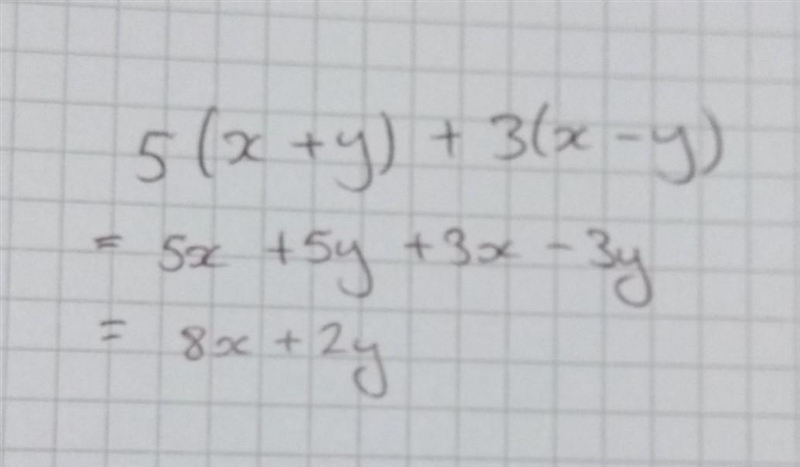 5(x + y) + 3(x - y)
= 5x + 5y + 3x - 3y
= 8x + 2y